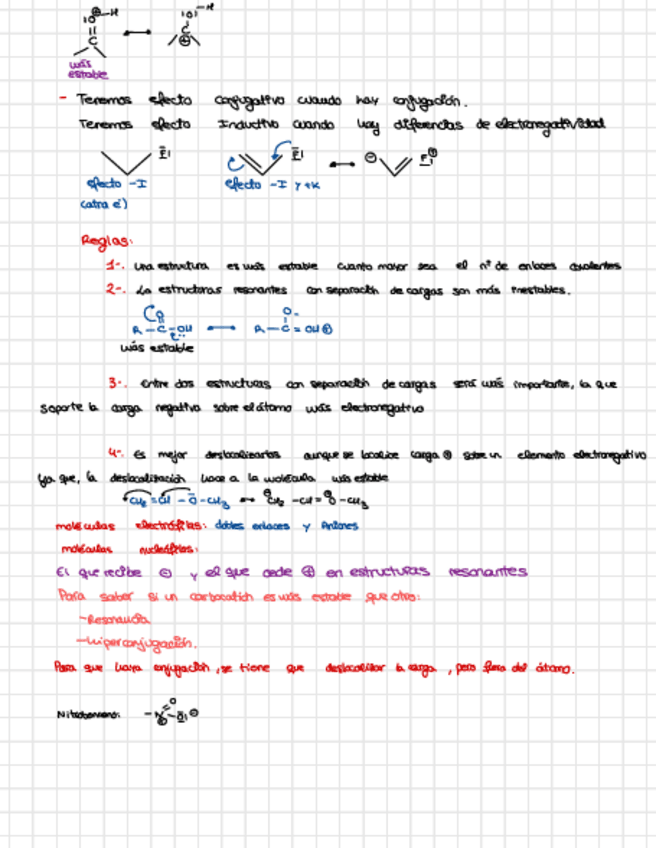 más
estable
- Tenemos efecto conjugativo cuando hay conjugación.
Tenemos efecto Inductivo cuando hay diferencias de electronegatividad
efecto -I
(atrae e⁻)
efecto -I y +K
Reglas:
1-. Una estructura es más estable cuanto mayor sea el nº de enlaces covalentes
2-. La estructuras resonantes con separación de cargas son más inestables.
R-C-OH ⟷ R-C=OH⊕
más estable
3-. Entre dos estructuras con separación de cargas será más importante, la que
soporte la carga negativa sobre el átomo más electronegativo
4-. Es mejor deslocalizarlos aunque se localice carga ⊕ sobre un elemento electronegativo
ya que, la deslocalización hace a la molécula más estable
CH₂=CH-O-CH₃ ⟷ CH₂-CH=O-CH₃
moléculas electrófilas: dobles enlaces y Aniones
moléculas nucleófilas:
El que recibe ⊖ y el que cede ⊕ en estructuras resonantes
Para saber si un carbocatión es más estable que otro:
-Resonancia
-Hiperconjugación.
Para que haya conjugación, se tiene que deslocalizar la carga, pero fuera del átomo.
Nitrobenceno: